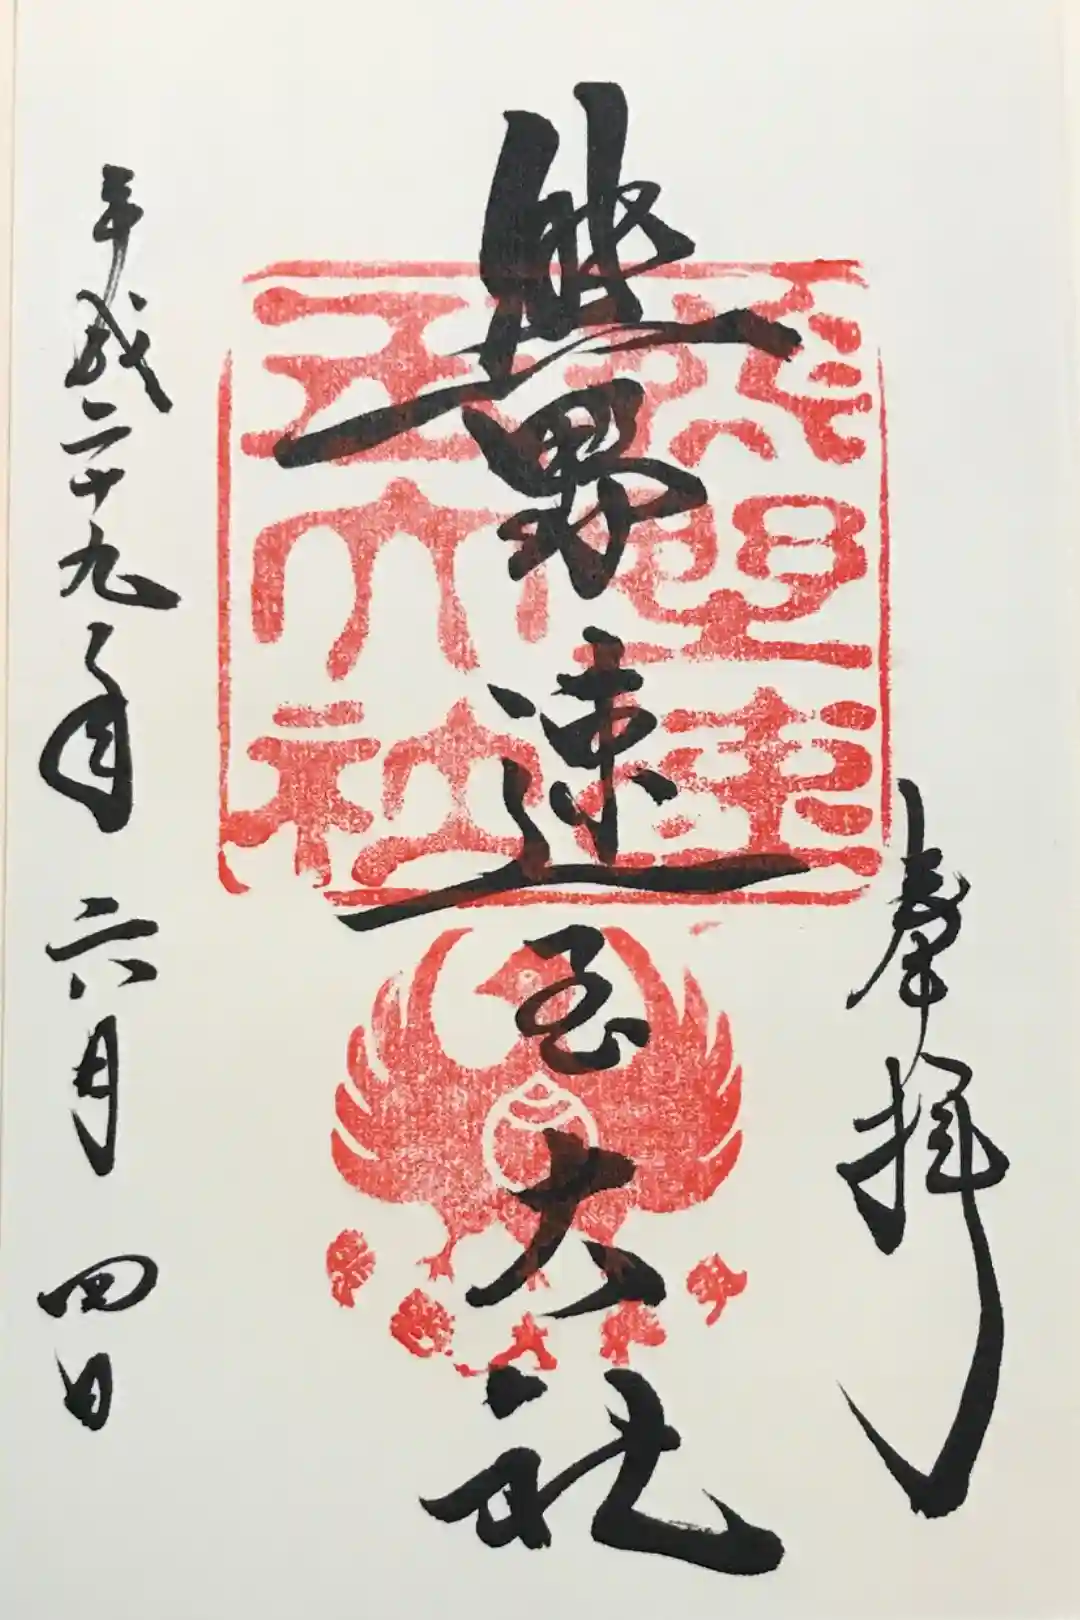 奉拝
熊野速玉大社
熊野速玉大社
平成二十九年六月四日